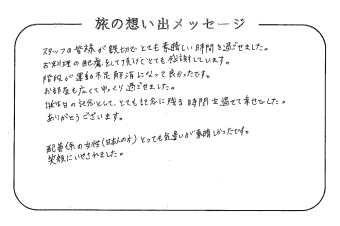 旅の想い出メッセージ
スタッフの皆様が親切でとても素晴しい時間を過ごせました。
お料理の配慮をして頂けてとても感謝しています。
階段が運動不足解消になって良かったです。
お部屋も広くてゆっくり過ごせました。
誕生日の記念として、とても記念に残る時間を過せて幸せでした。
ありがとうございます。
配善係の女性(日本人の方)とっても気遣いが素晴しかったです。
笑顔にいやされました。